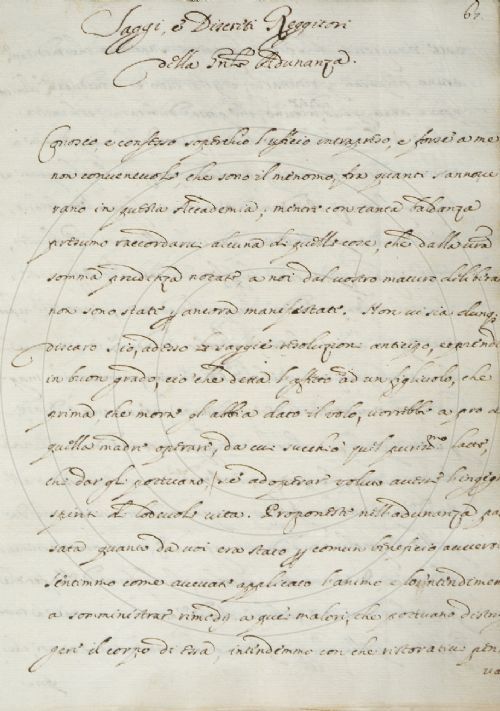 67
Saggi, e Discreti Reggitori
della Adunanza.
Conosco e confesso soperchio l'ufficio intrapreso, e forse a me
non convenevole, che sono il menomo, fra quanti s'annove
rano in questa Accademia; mentre con tanta baldanza
presumo raccordarvi alcuna di quelle cose, che dalla vra
somma prudenza notate, a noi dal vostro maturo
non sono state ancora manifestate. Non vi sia dunq
discaro s'io, adesso le saggie resoluzioni anticipo, e prende
in buon grado, ciò che detta l'affetto ad un figliuolo, che
prima che morte gl'abbia dato il volo, vorrebbe a pro di
quella madre operare, da cui succhiò quel puriss.mo latte,
che dar gli potevano, se adoperar voluto avesse l'ingegno
spirti di lodevole vita. Proponeste nell'adunanza pas
sata quanto da voi era stato comun benefizio
Sentimmo come avevate applicato l'animo e lo'ntendimen
a somministrar rimedj a quei malori, che potevano distrug
gere il corpo di Essa, intendemmo con che ristorativi pen
va